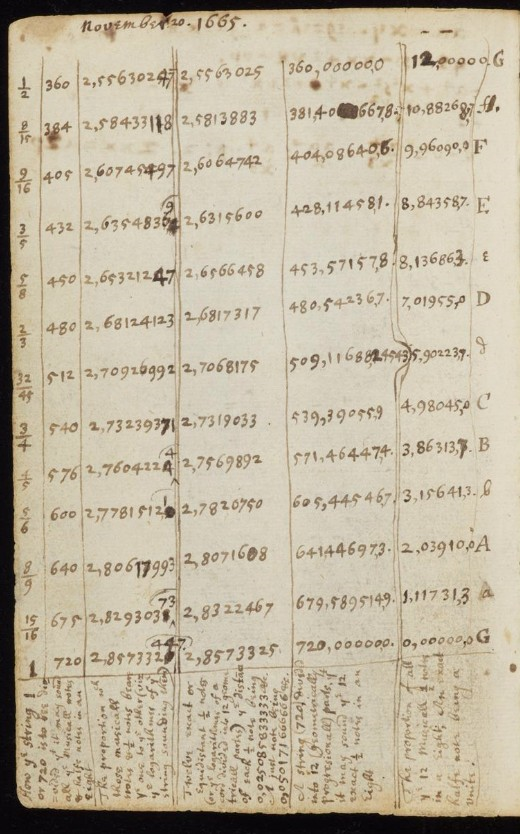 November 20. 1665.
1/2 360 2,5563025 2,5563025 360,000000 12,00000 G
8/15 384 2,58433118 2,5813883 381,40 6678. 10,88268
9/16 405 2,60745497 2,6064742 404,086406. 9,96090,0 F
3/5 432 2,6354836 2,6315600 428,114581. 8,843587. E
5/8 450 2,65321247 2,6566458 453,571578, 8,136863. ε
2/3 480 2,68124123 2,6817317 480,542367. 7,01955,0 D
32/45 512 2,70926992 2,7068175 509,116882 5,902237.
3/4 540 2,73239371 2,7319033 539,390559 4,98045,0 C
4/5 576 2,7604224 2,7569892 571,464474. 3,86313,7. B
5/6 600 2,7781512 2,7820750 605,445467. 3,156413. b
8/9 640 2,80617993 2,8071608 641446973. 2,03910,0 A
15/16 675 2,829303 2,8322467 679,5895149. 1,11731,3 a
1 720 2,857332 2,8573325 720,000000. 0,00000,0 G
how yᵉ string 1
or 720 is to be
it may sound
all yᵉ musicall notes
& halfe notes in an
Eight
The proportion of
these musicall
notes & ½ notes being
yᵉ logarithmes of yᵉ
string sounding them
Twelve exact or
Equidistant ½ notes
or yᵉ logarithmes of a
chord divided into 12 geome
trically parts, yᵉ distance
of each ½ note being
0,025085833333 &c.
A just note being
0,050171666666 &c.
A string (720) divided
into 12 (geometrically
progressionall) parts, yᵗ
it may sound yᵉ 12
exact ½ notes in an
Eight.
The proportion of all
yᵉ 12 Musicall ½ notes
in an eight. An exact
halfe note being a
Unite.